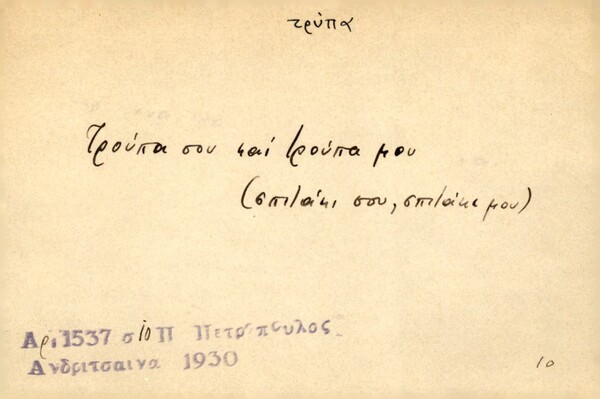 τρύπα
Τρούπα σου καί τρούπα μου
(σπιτάκι σου, σπιτάκι μου)
Αρ. 1537 σ 10 Π Πετρόπουλος
Ανδριτσαινα 1930
10